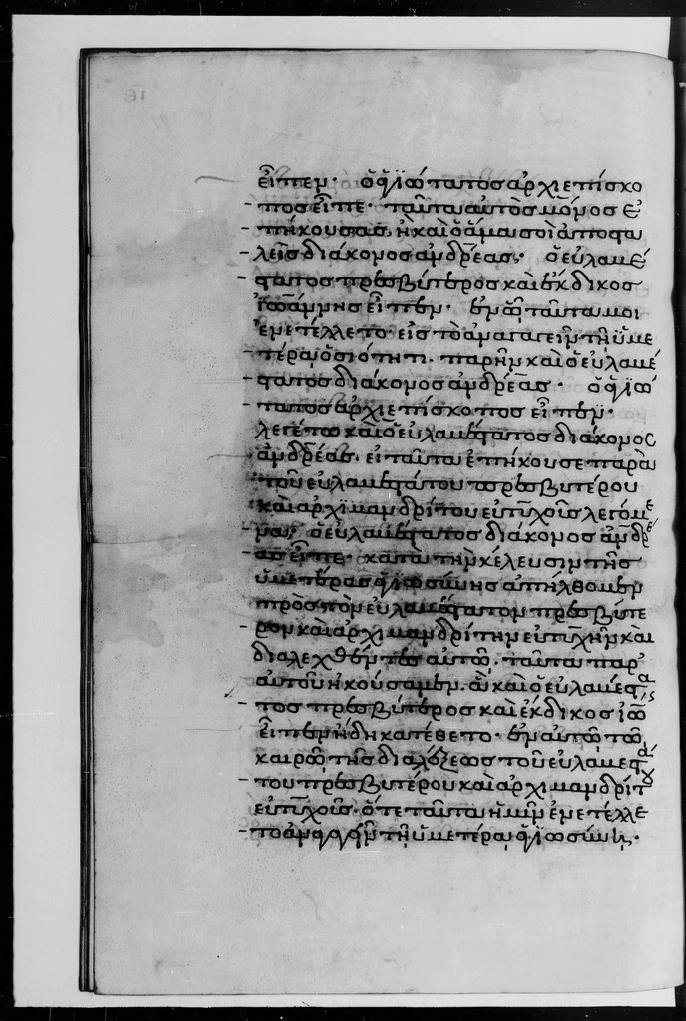 εἶπεν· ὁ ἁγιώτατος ἀρχιεπίσκο
πος εἶπε· ταῦτα αὐτὸς μόνος ἐ
πήκουσας, ἢ καὶ ὁ ἅμα σοι ἀποστα
λεὶς διάκονος ἀνδρέας· ὁ εὐλαβέ
στατος πρεσβύτερος καὶ ἔκδικος
ἰωάννης εἶπεν· ἐν ᾧ ταῦτά μοι
ἐνετέλλετο εἰς τὸ ἀναγαγεῖν τῇ ὑμε
τέρᾳ ὁσιότητι. παρῆν καὶ ὁ εὐλαβέ
στατος διάκονος ἀνδρέας· ὁ ἁγιώ
τατος ἀρχιεπίσκοπος εἶπεν·
λεγέτω καὶ ὁ εὐλαβέστατος διάκονος
ἀνδρέας, εἰ ταῦτα ἐπήκουσε παρὰ
τοῦ εὐλαβεστάτου πρεσβυτέρου
καὶ ἀρχιμανδρίτου εὐτυχοῦς λεγόμε
να; ὁ εὐλαβέστατος διάκονος ἀνδρέ
ας εἶπε· κατὰ τὴν κέλευσιν τῆς
ὑμετέρας ἁγιωσύνης ἀπήλθομεν
πρὸς τὸν εὐλαβέστατον πρεσβύτε
ρον καὶ ἀρχιμανδρίτην εὐτυχῆν καὶ
διαλεχθέντες αὐτῷ. ταῦτα παρ'
αὐτοῦ ἠκούσαμεν. ἃ καὶ ὁ εὐλαβέστα
τος πρεσβύτερος καὶ ἔκδικος ἰω
εἶπεν ἤδη κατέθετο. ἐν αὐτῷ τῷ
καιρῷ τῆς διαλέξεως τοῦ εὐλαβεστά
του πρεσβυτέρου καὶ ἀρχιμανδρίτου
εὐτυχοῦς. ὅτε ταῦτα ἡμῖν ἐνετέλλε
το ἀναγαγεῖν τῇ ὑμετέρᾳ ἁγιωσύνῃ·